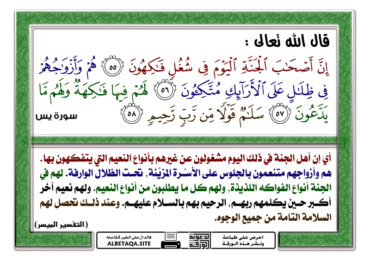 قال الله تعالى :
إِنَّ أَصْحَٰبَ ٱلْجَنَّةِ ٱلْيَوْمَ فِى شُغُلٍ فَٰكِهُونَ ۝٥٥ هُمْ وَأَزْوَٰجُهُمْ
فِى ظِلَٰلٍ عَلَى ٱلْأَرَآئِكِ مُتَّكِـُٔونَ ۝٥٦ لَهُمْ فِيهَا فَٰكِهَةٌ وَلَهُم مَّا
يَدَّعُونَ ۝٥٧ سَلَٰمٌ قَوْلًا مِّن رَّبٍّ رَّحِيمٍ ۝٥٨ سورة يس
أي إن أهل الجنة في ذلك اليوم مشغولون عن غيرهم بأنواع النعيم التي يتفكهون بها.
هم وأزواجهم متنعمون بالجلوس على الأسرة المزيّنة، تحت الظلال الوارفة. لهم في
الجنة أنواع الفواكه اللذيذة، ولهم كل ما يطلبون من أنواع النعيم. ولهم نعيم آخر
أكبر حين يكلمهم ربهم، الرحيم بهم بالسلام عليهم. وعند ذلك تحصل لهم
السلامة التامة من جميع الوجوه.
(التفسير الميسر)
احرص على طباعة
ونشر هذه الورقة
الدال على الخير كفاعله
ALBETAQA.SITE